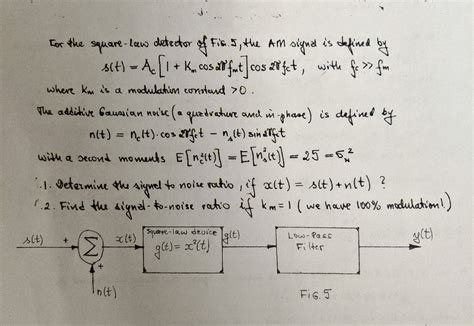 For the square-law detector of Fig.5, the AM signal is defined by
s(t) = Ac [1 + Km cos 2πfmt] cos 2πfct , with fc >> fm
where Km is a modulation constant > 0.
The additive Gaussian noise (a quadrature and in-phase) is defined by
n(t) = nc(t)·cos 2πfct - ns(t) sin 2πfct
with a second moments E[nc²(t)] = E[ns²(t)] = 25 = σn²
1. Determine the signal to noise ratio, if x(t) = s(t) + n(t) ?
2. Find the signal-to-noise ratio if km = 1 (we have 100% modulation!)
s(t) + Σ x(t) Square-law device g(t) = x²(t) g(t) Low-Pass Filter y(t)
+
n(t)
Fig.5